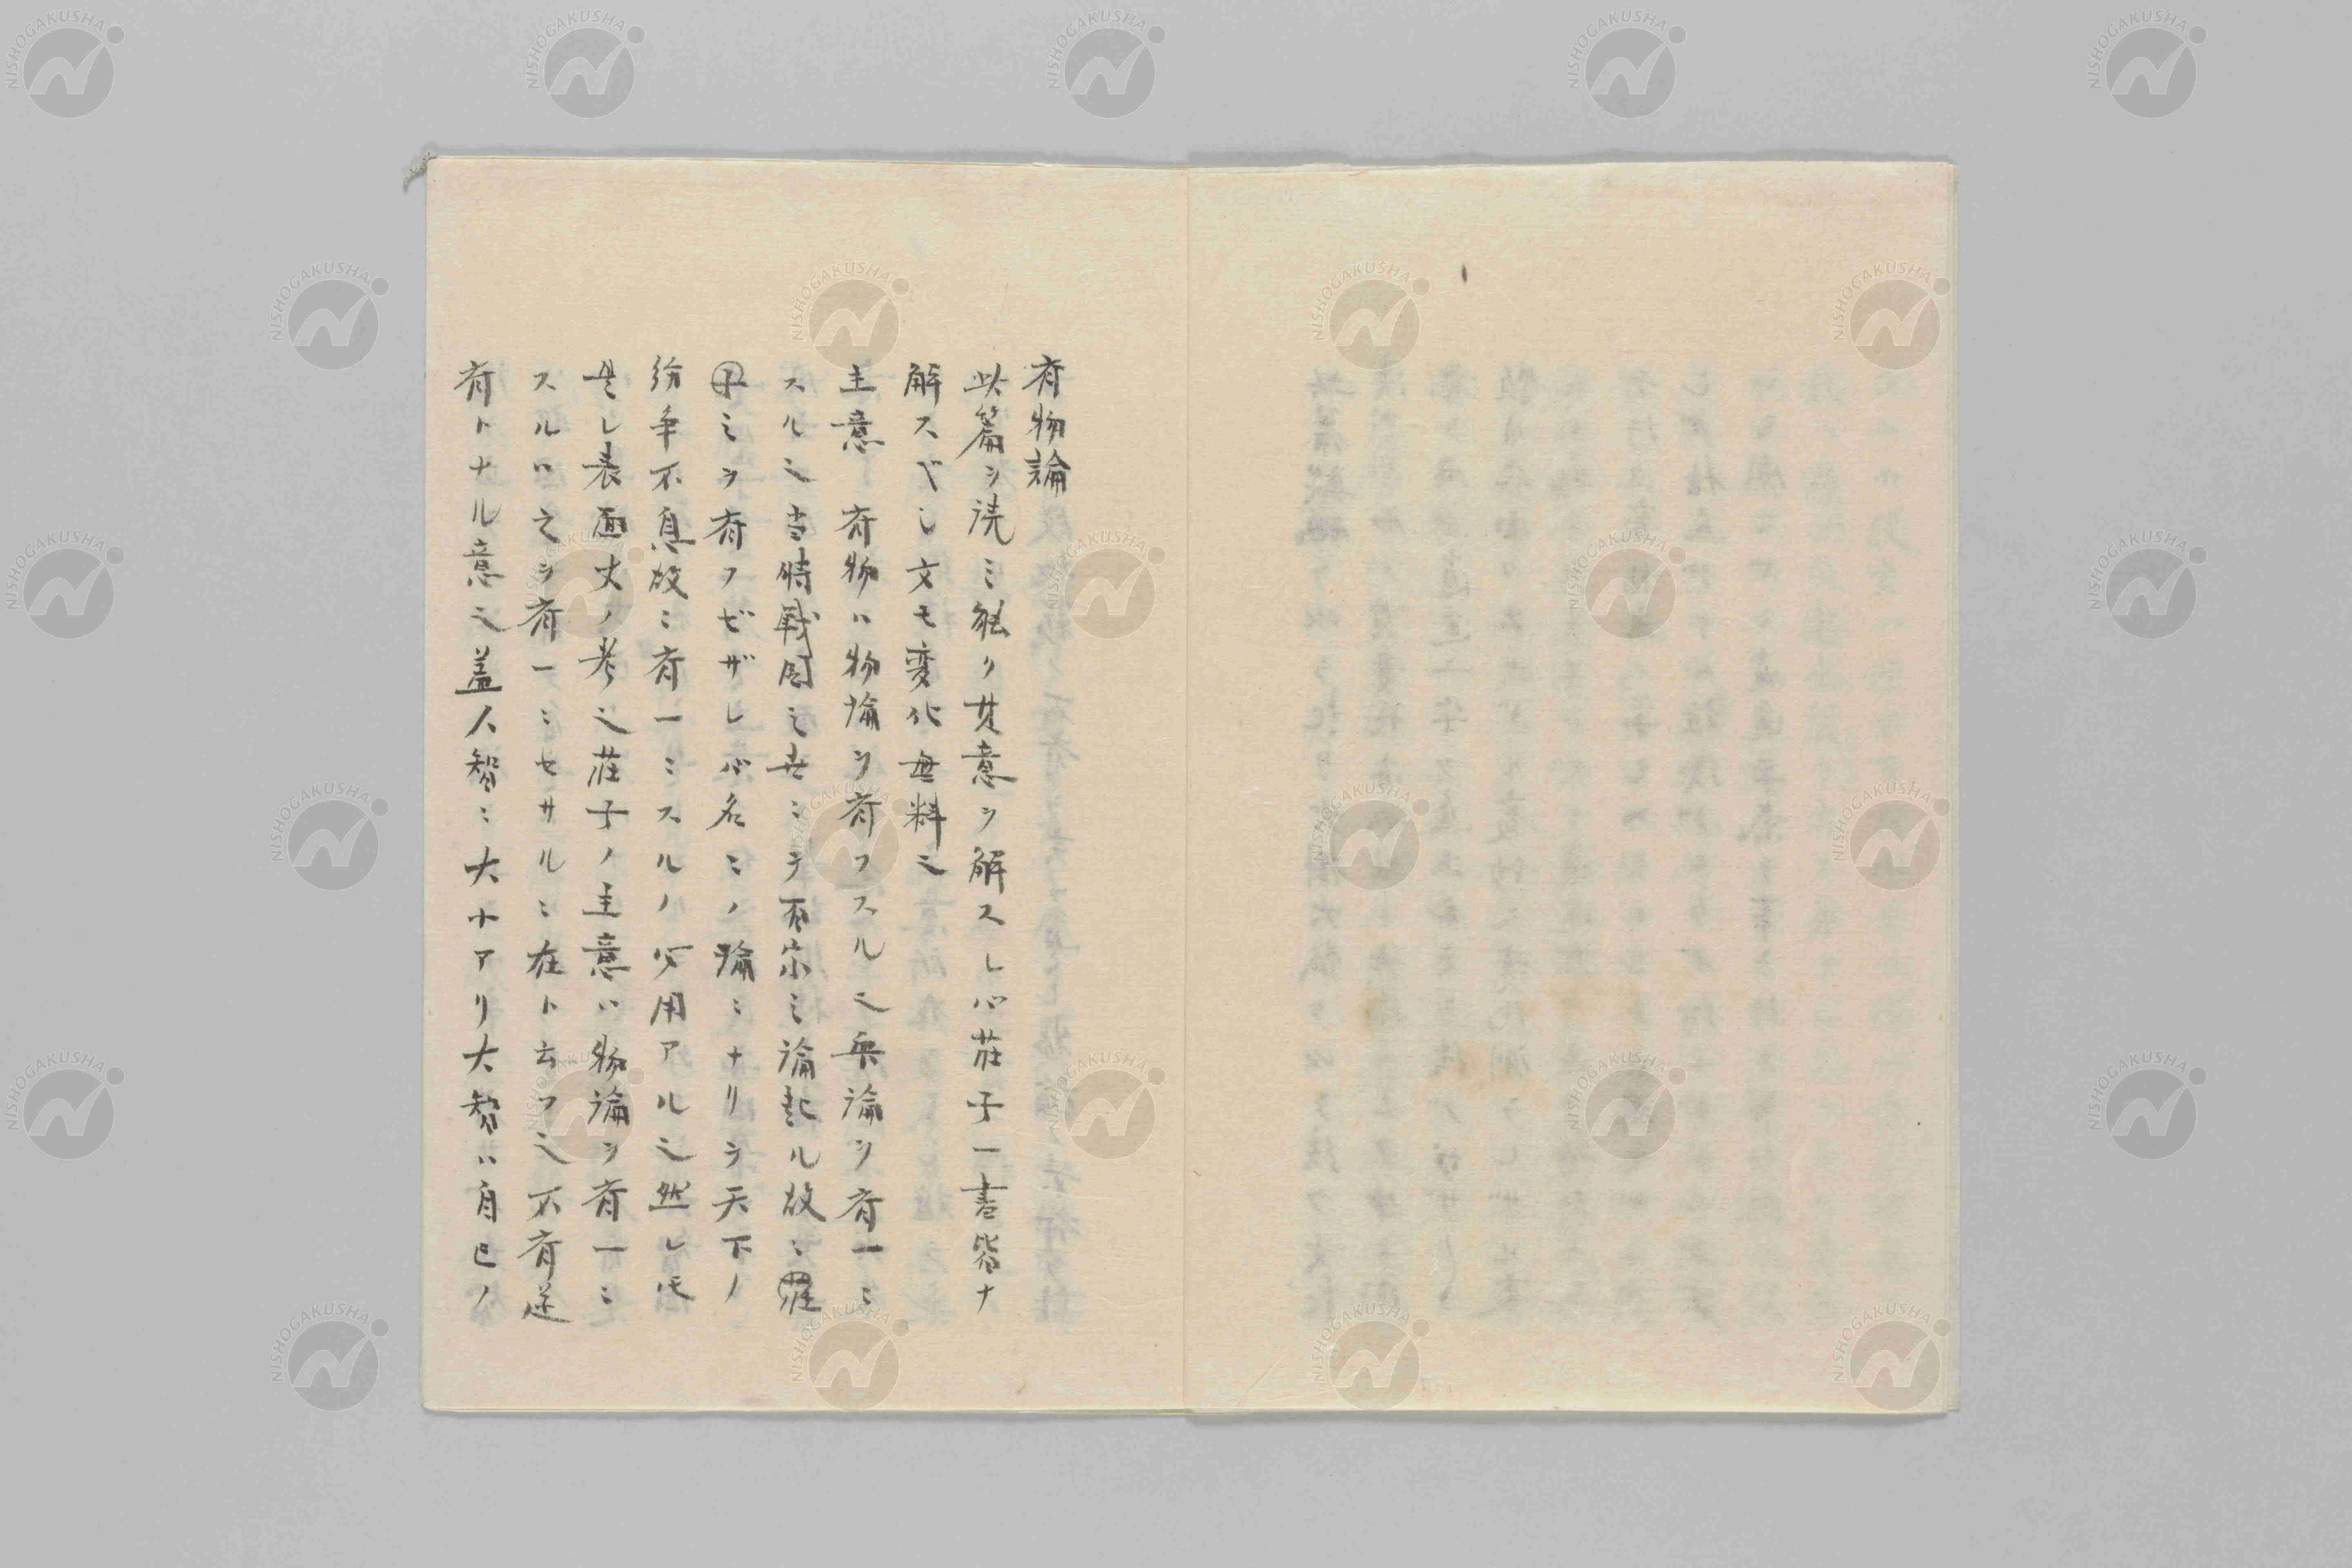 斉物論
此篇ヲ読ミ能ク其意ヲ解スレハ荘子一書皆ナ
解スベシ文モ変化無料也
主意 斉物ハ物論ヲ斉フスル也衆論ヲ斉一ニ
スル也当時戦国之世ニテ不宗之論起ル故ニ
之ヲ斉フゼザレハ名ニノ論ニナリテ天下ノ
紛争不息故ニ斉一ニスルノ必用アル也然レ𪜈
是レ表面丈ノ考也荘子ノ主意ハ物論ヲ斉一ニ
スルハ之ヲ斉一ニセサルニ在ト云フ也不斉遂
斉トナル意也蓋人智ニ大小アリ大智ハ自己ノ
NISHOGAKUSHA